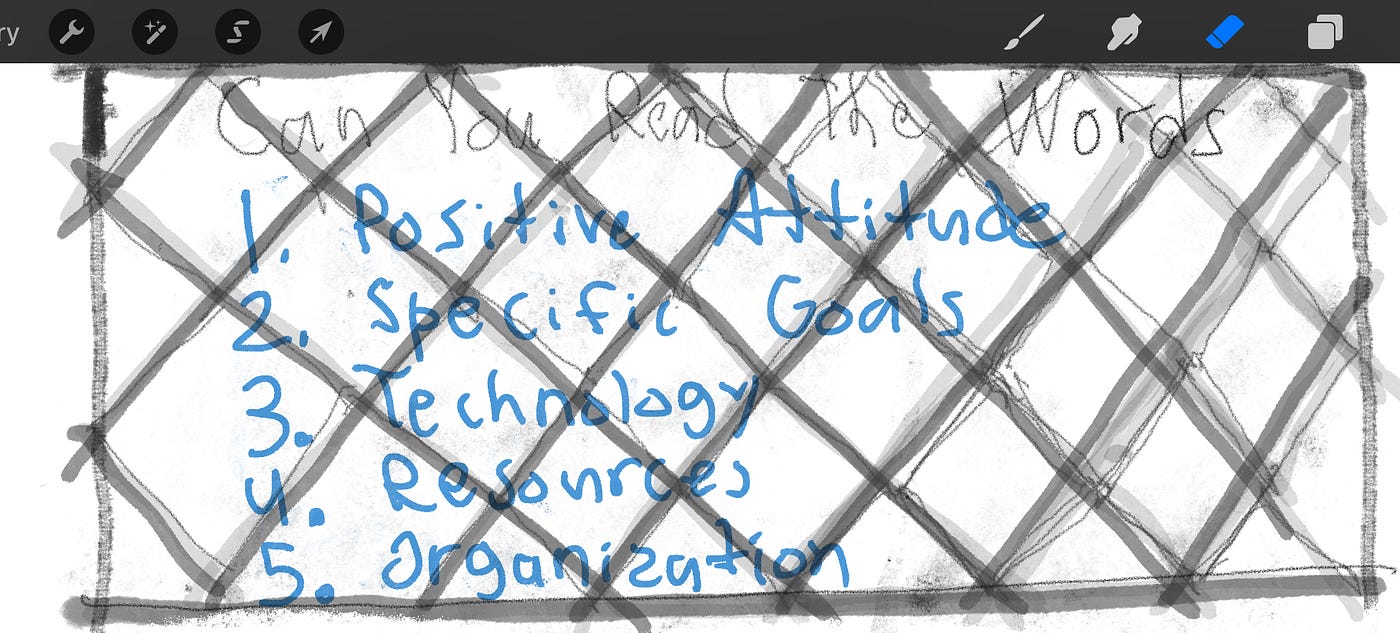 ry
Can You Read the Words
1. Positive Attitude
2. Specific Goals
3. Technology
4. Resources
5. Organization